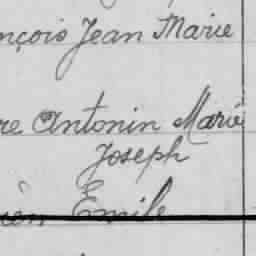 nçois Jean Marie
re Antonin Marie
Joseph
ien Emile